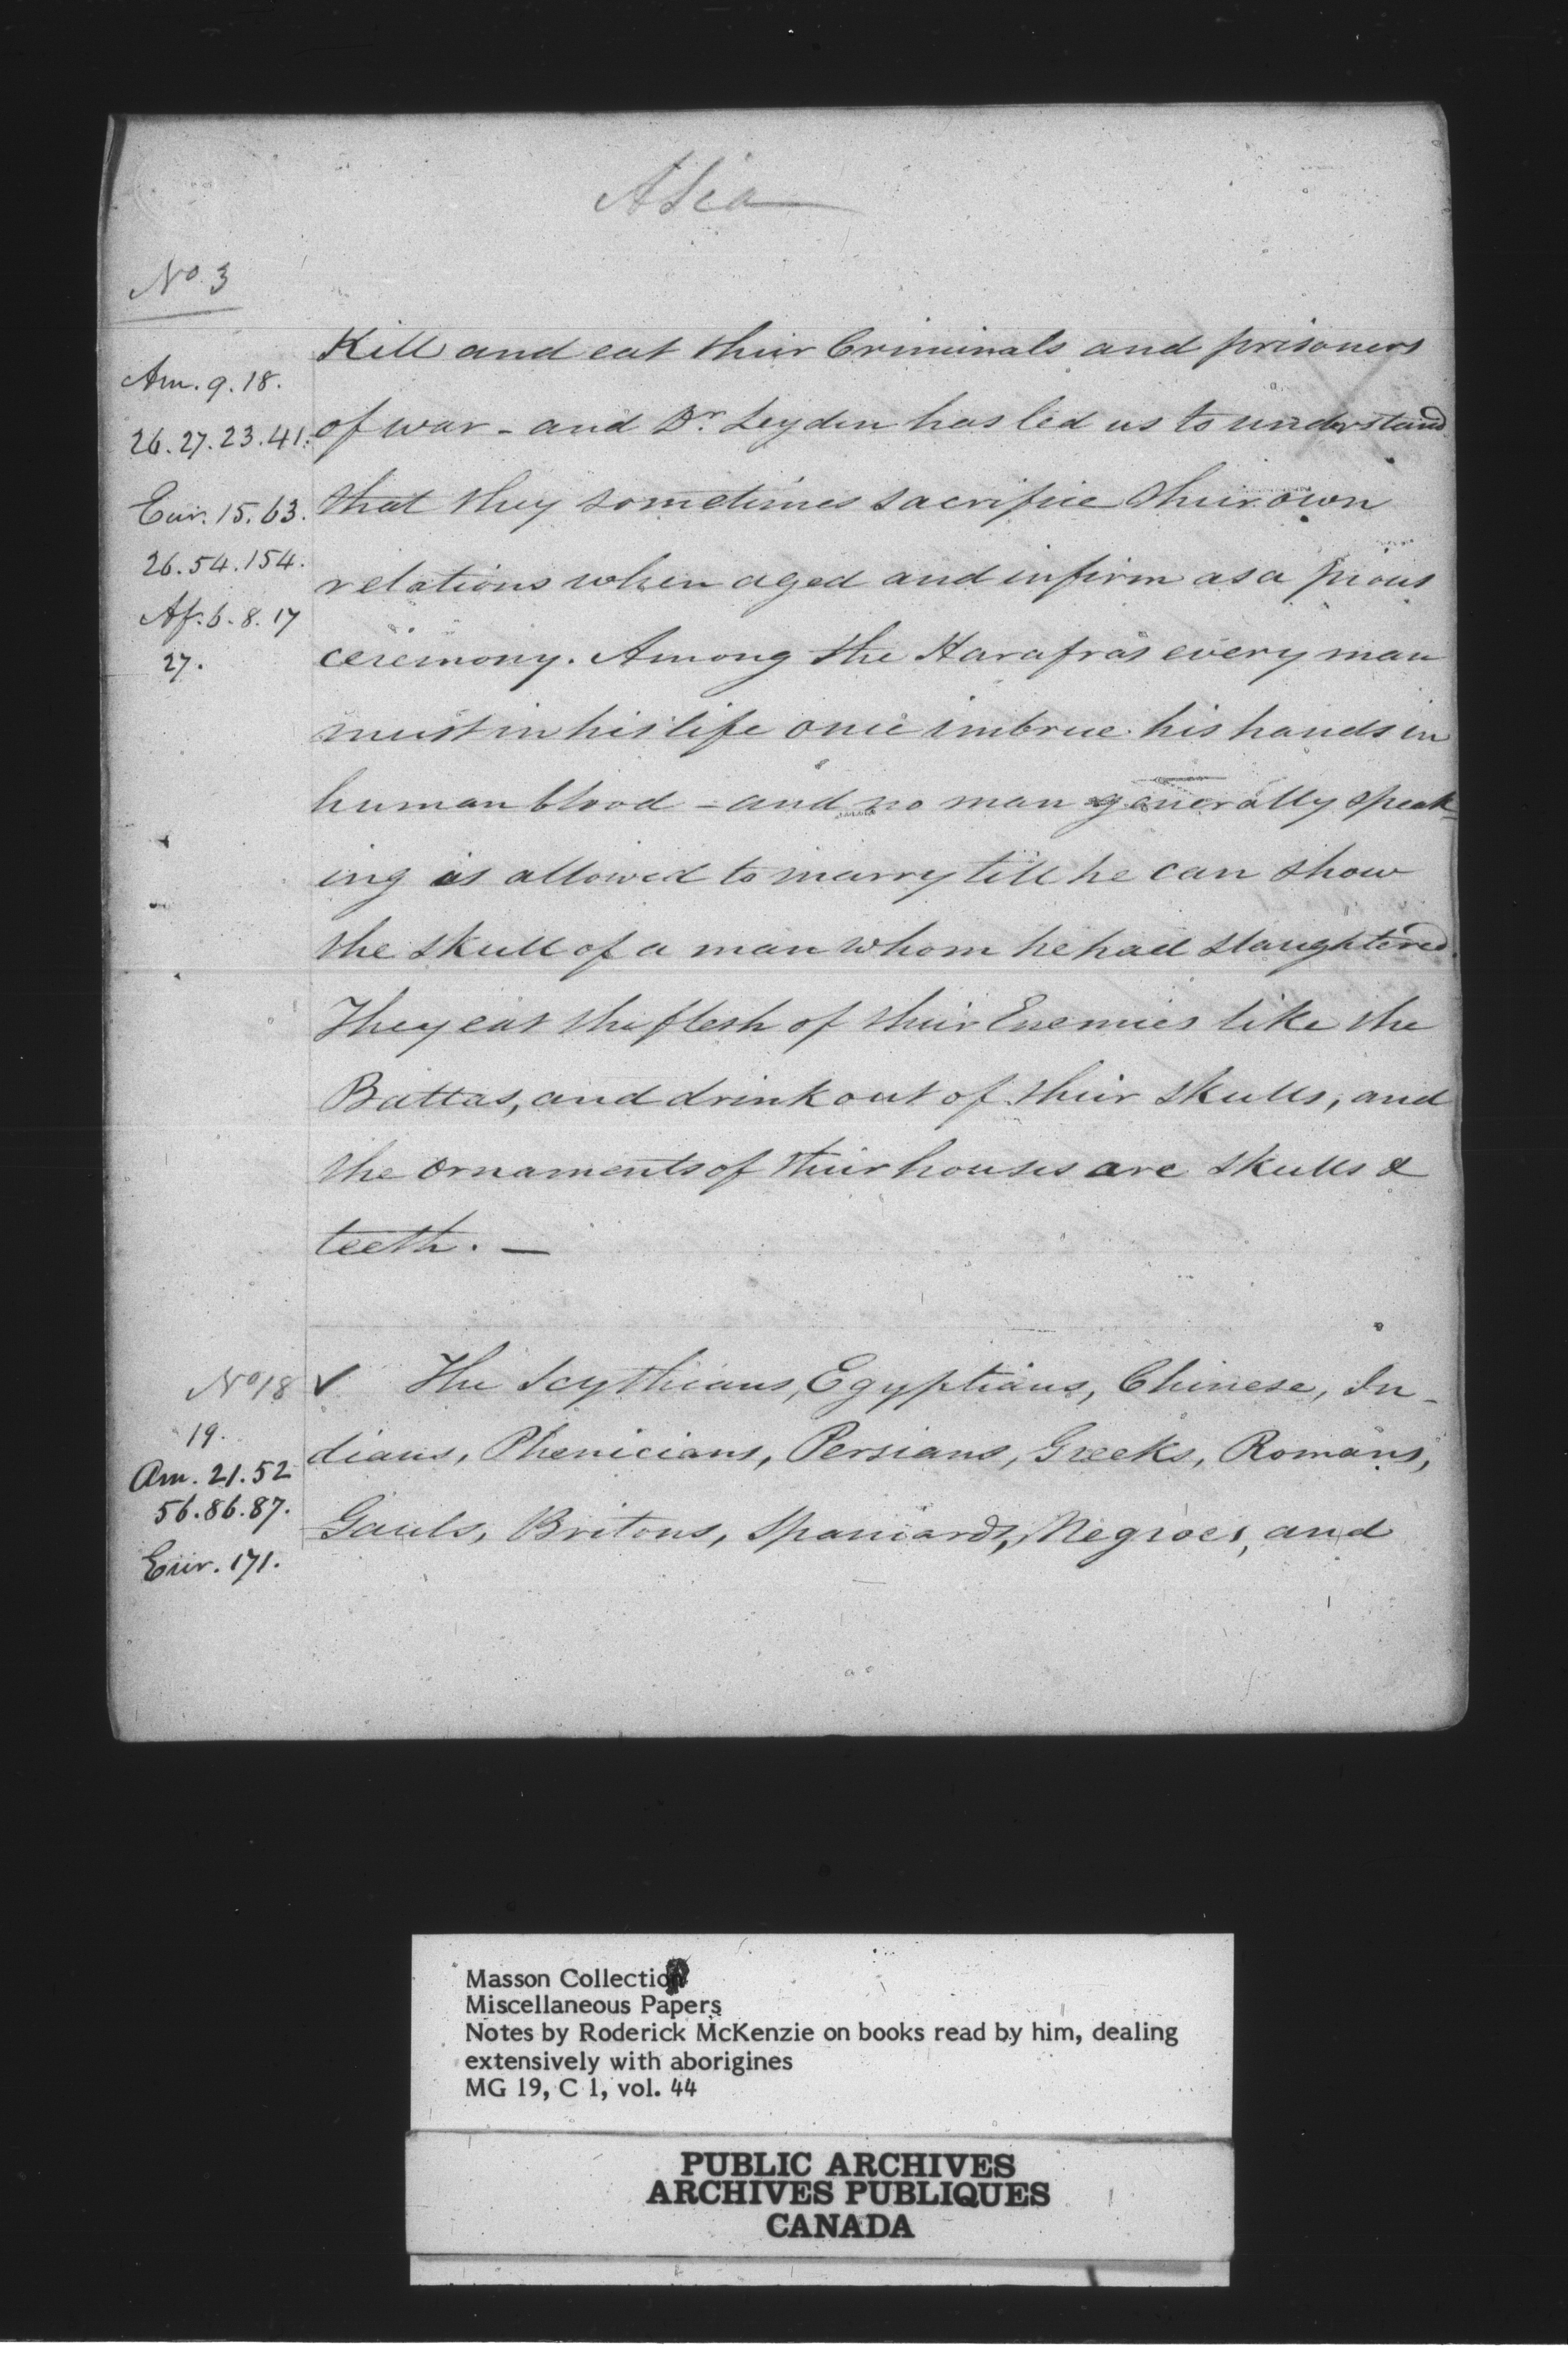 Asia
No 3
Am. 9. 18.
26. 27. 23. 41.
Eur. 15. 63.
26. 54. 154.
Af. 6. 8. 17
27.
Kill and eat their Criminals and prisoners
of war - and Dr. Leyden has led us to understand
that they sometimes sacrifice their own
relations when aged and infirm as a pious
ceremony. Among the Harafras every man
must in his life once imbrue his hands in
human blood - and no man generally speak=
ing is allowed to marry till he can show
the skull of a man whom he had slaughtered.
They eat the flesh of their Enemies like the
Battas, and drink out of their skulls, and
the ornaments of their houses are skulls &
teeth. —
No 18
19.
Am. 21. 52
56. 86. 87.
Eur. 171.
✓ The Scythians, Egyptians, Chinese, In-
dians, Phenicians, Persians, Greeks, Romans,
Gauls, Britons, Spaniards, Negroes, and
Masson Collection
Miscellaneous Papers
Notes by Roderick McKenzie on books read by him, dealing
extensively with aborigines
MG 19, C 1, vol. 44
PUBLIC ARCHIVES
ARCHIVES PUBLIQUES
CANADA